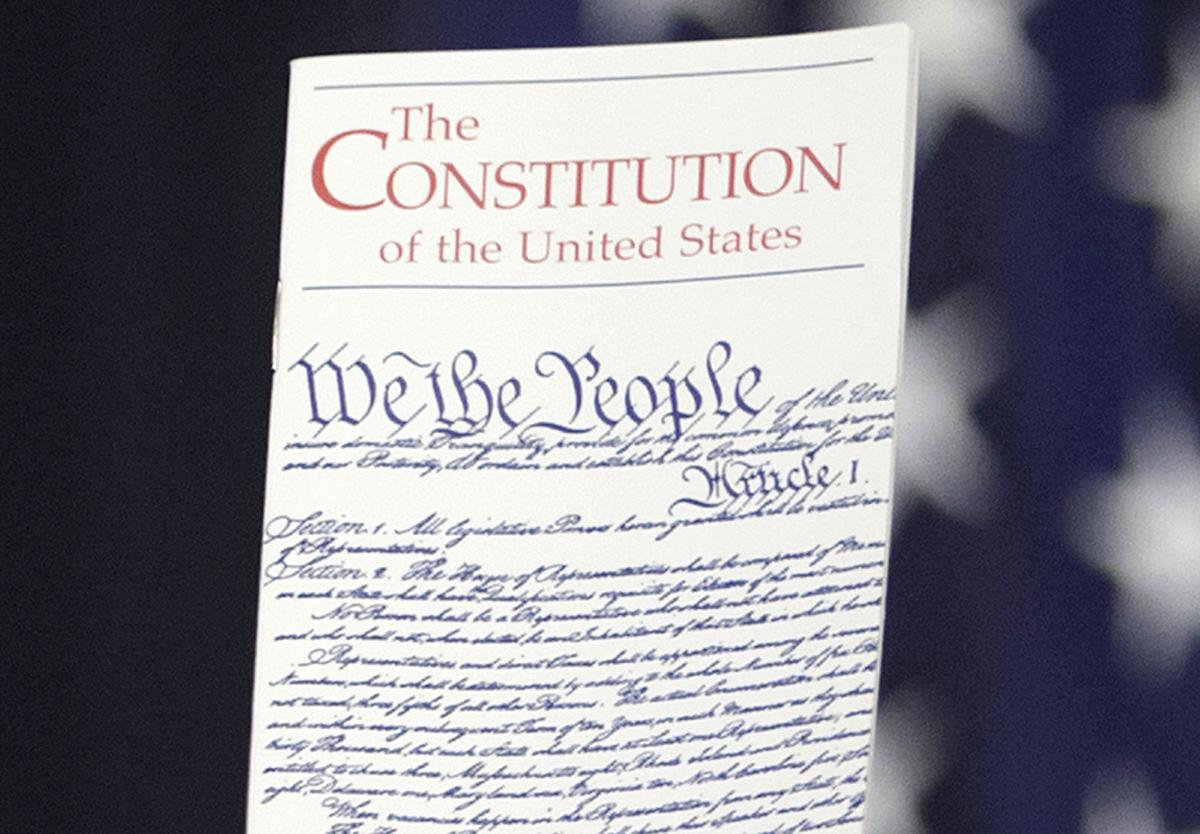 The
CONSTITUTION
of the United States
We the People of the Unit
insure domestic Tranquility, provide for the common defence, promo
and our Posterity, do ordain and establish this Constitution for the
Article. I.
Section. 1. All legislative Powers herein granted shall be vested in
of Representatives.
Section. 2. The House of Representatives shall be composed of Mem
in each State shall have Qualifications requisite for Electors of the most numerous
No Person shall be a Representative who shall not have attained to
and who shall not, when elected, be an Inhabitant of that State in which he shall
Representatives and direct Taxes shall be apportioned among the several
Numbers, which shall be determined by adding to the whole Number of free
not taxed, three fifths of all other Persons. The actual Enumeration shall be
and within every subsequent Term of ten Years, in such Manner as they shall
thirty Thousand, but each State shall have at Least one Representative; and
entitled to chuse three, Massachusetts eight, Rhode Island and Providence
eight, Delaware one, Maryland six, Virginia ten, North Carolina five, South
When vacancies happen in the Representation from any State, the
The House of shall chuse their Speaker and other